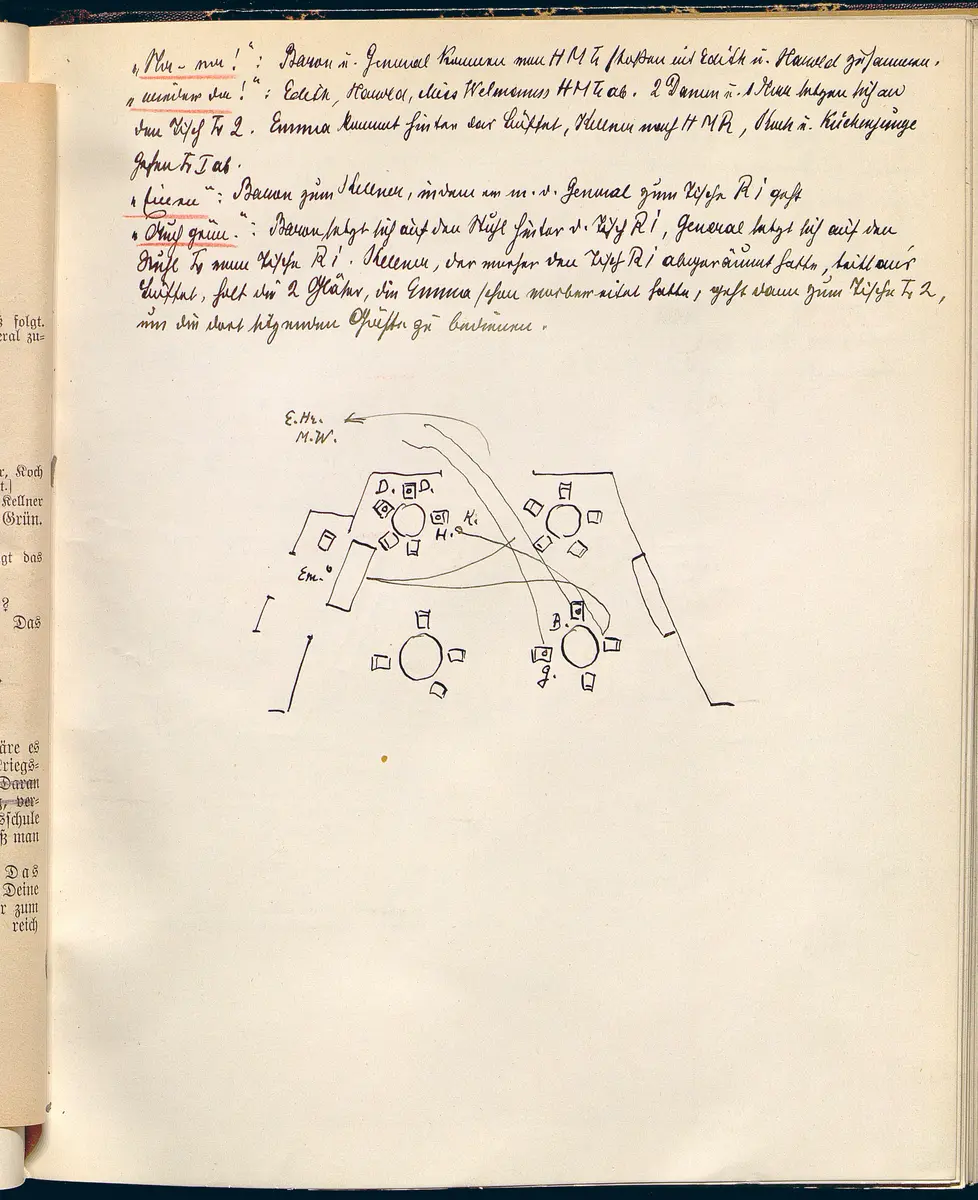 „Na-na!“: Baron u. General kommen von HML stoßen mit Edith u. Harold zusammen.
„wieder da!“: Edith, Harold, Miss Welmann HML ab. 2 Damen u. 1 Herr setzen sich an
den Tisch L 2. Emma kommt hinter das Büffet, Kellner nach HMR, Koch u. Küchenjunge
gehen L I ab.
„“: Baron zum Kellner, indem er m. d. General zum Tische R 1 geht
„Auch grün.“: Baron setzt sich auf den Stuhl hinter d. Tisch R 1, General setzt sich auf den
Stuhl L vom Tische R 1. Kellner, der vorher den Tisch R 1 abgeräumt hatte, eilt ans
Büffet, holt die 2 Gläser, die Emma schon vorbereitet hatte, geht dann zum Tische L 2,
um die dort sitzenden Gäste zu bedienen.
E. Hr.
M.W.
D. D.
H. K.
Em.
B.
G.
ß folgt.
eral zu=
r, Koch
t.)
Kellner
Grün.
gt das
?
Das
äre es
kriegs=
Daran
g, ver=
sschule
ß man
Das
Deine
r zum
reich